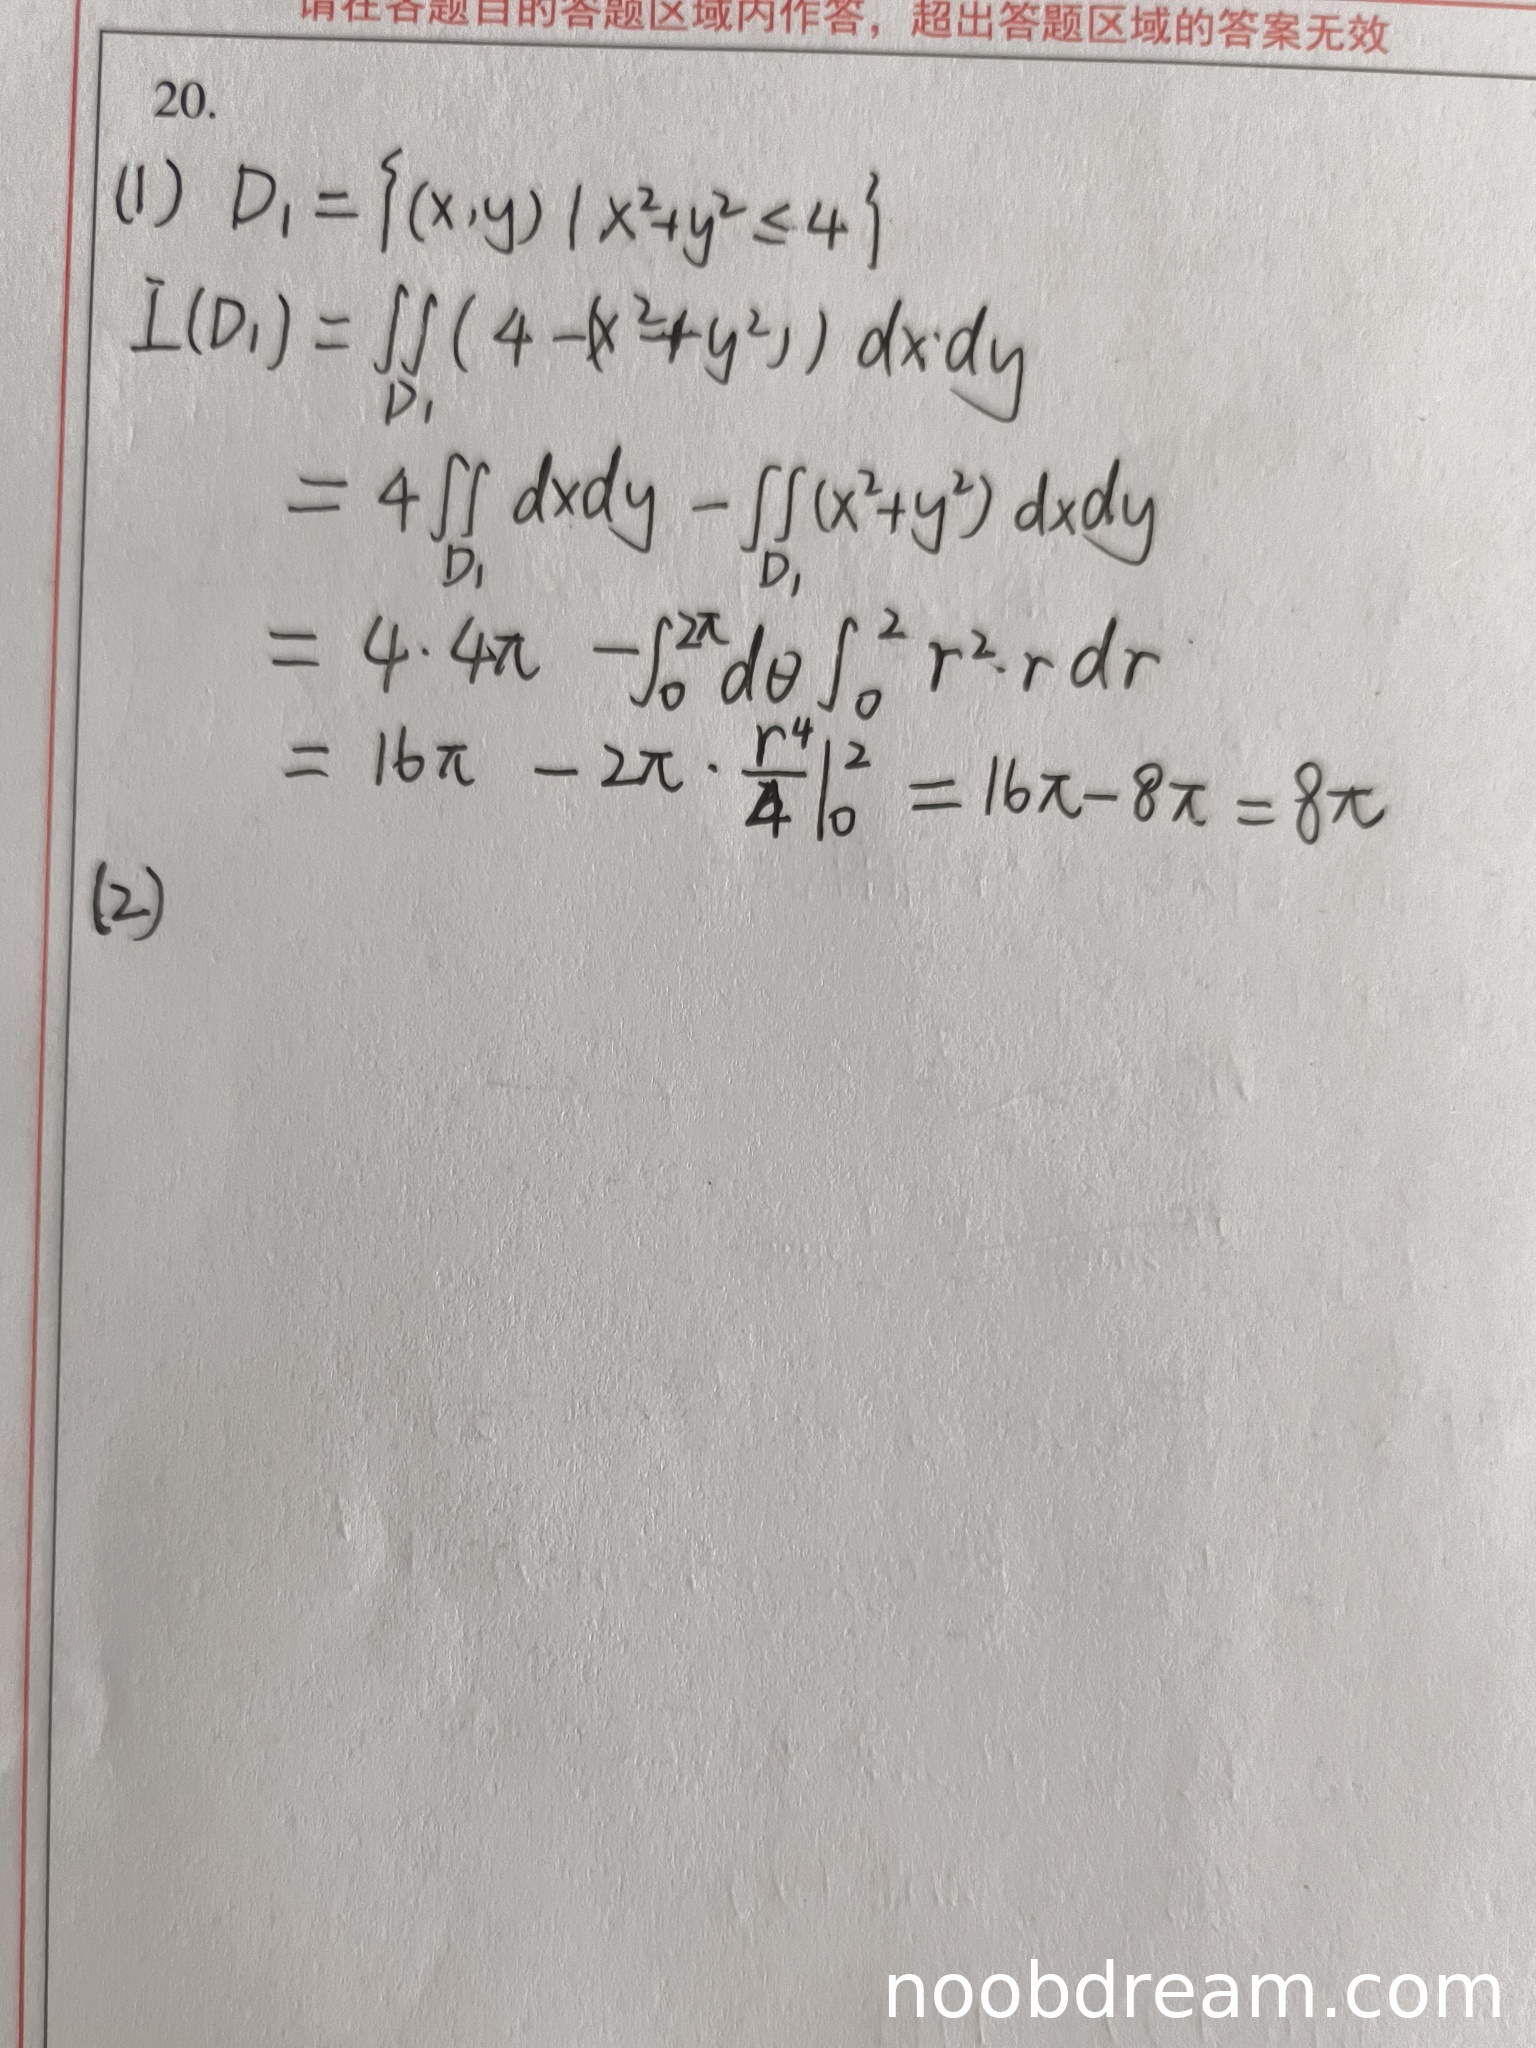 请在各题目的答题区域内作答，超出答题区域的答案无效
20.
(1) D₁ = {(x,y) | x²+y² ≤ 4}
I(D₁) = ∬_{D₁} (4-(x²+y²)) dx·dy
= 4∬_{D₁} dxdy - ∬_{D₁} (x²+y²) dxdy
= 4·4π - ∫₀^{2π} dθ ∫₀² r²·r dr
= 16π - 2π · r⁴/4 |₀² = 16π - 8π = 8π
(2)
noobdream.com